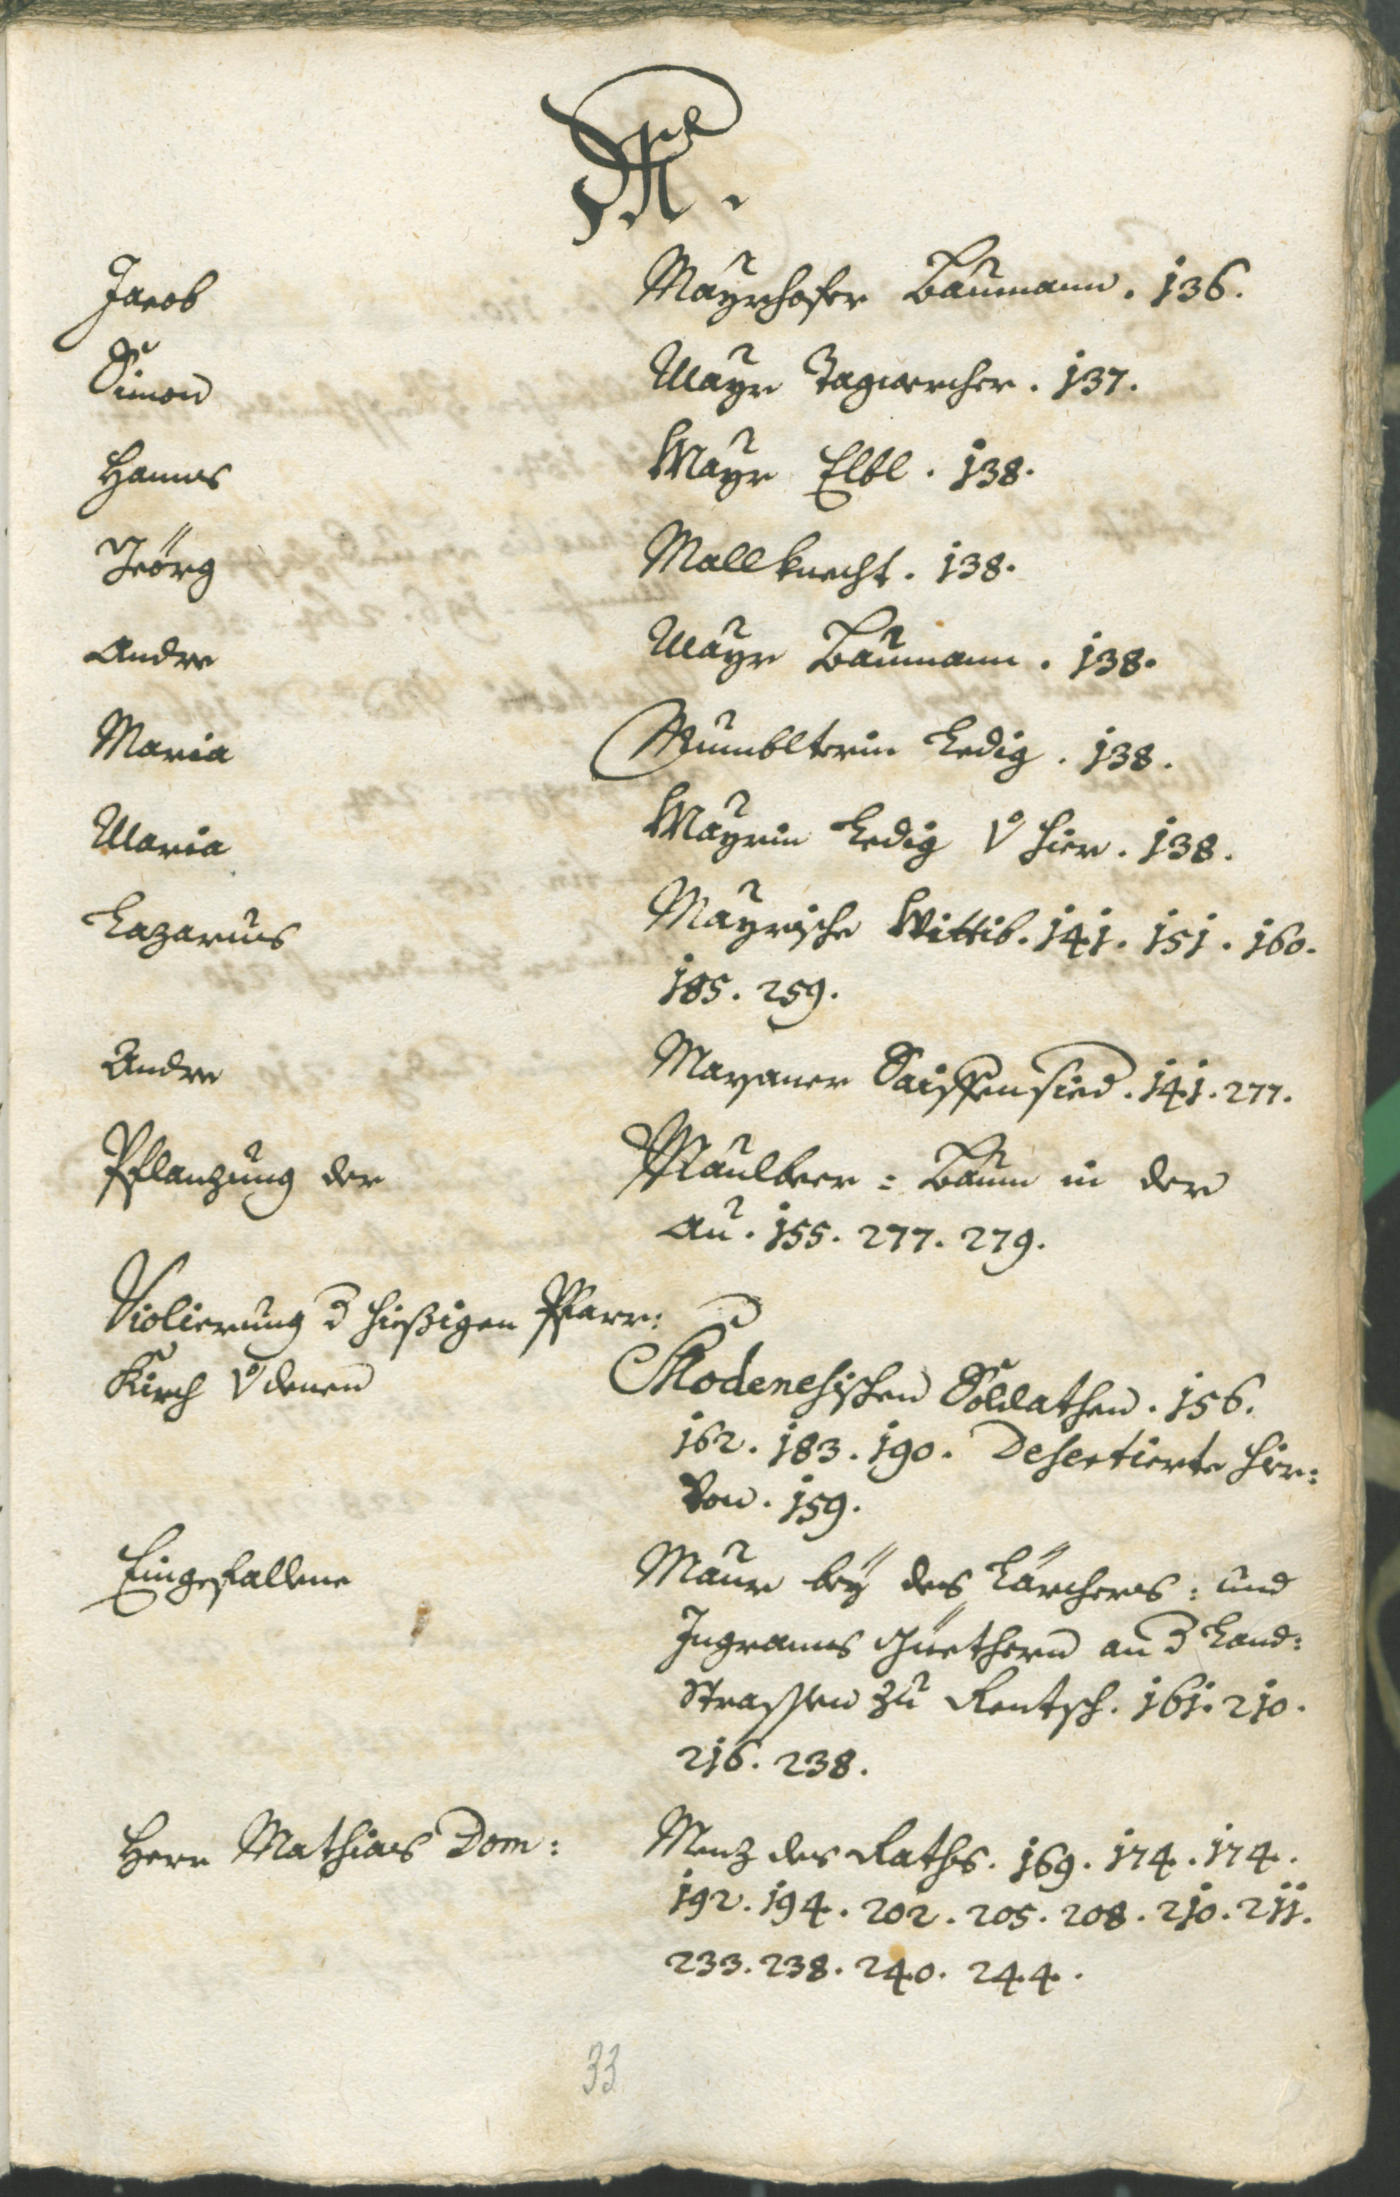 M.
Jacob Mayrhofer Baumann. 136.
Simon Mayr Tagwercher. 137.
Hannes Mayr Elbl. 138.
Jeörg Mallknecht. 138.
Andre Mayr Baumann. 138.
Maria Mumblterin Ledig. 138.
Maria Mayrin Ledig v hier. 138.
Lazarus Mayrische Wittib. 141. 151. 160.
185. 259.
Andre Mayaner Saiffensied. 141. 277.
Pflanzung der Maulbeer= Baum in der
Au. 155. 277. 279.
Violierung d hießigen Pfarr:
Kirch v denen Modenesischen Soldathen. 156.
162. 183. 190. Desertierte hier:
von. 159.
Eingefallene Maur beÿ des Lärchers: und
Ingrams Güethern an d Land:
Strassen zu Rentsch. 161. 210.
216. 238.
Herr Mathias Dom: Menz des Raths. 169. 174. 174.
192. 194. 202. 205. 208. 210. 211.
233. 238. 240. 244.
33